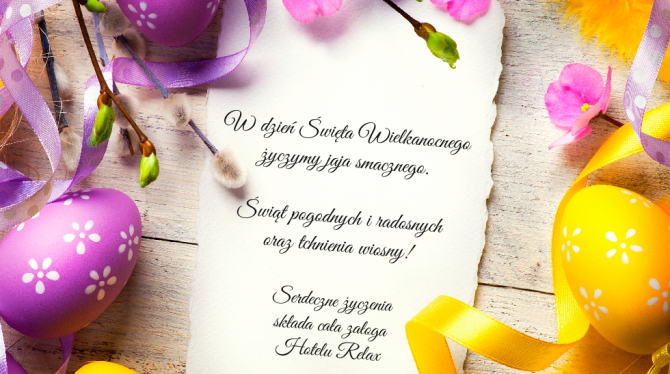 W dzień Święta Wielkanocnego
życzymy jaja smacznego.
Świąt pogodnych i radosnych
oraz tchnienia wiosny!
Serdeczne życzenia
składa cała załoga
Hotelu Relax